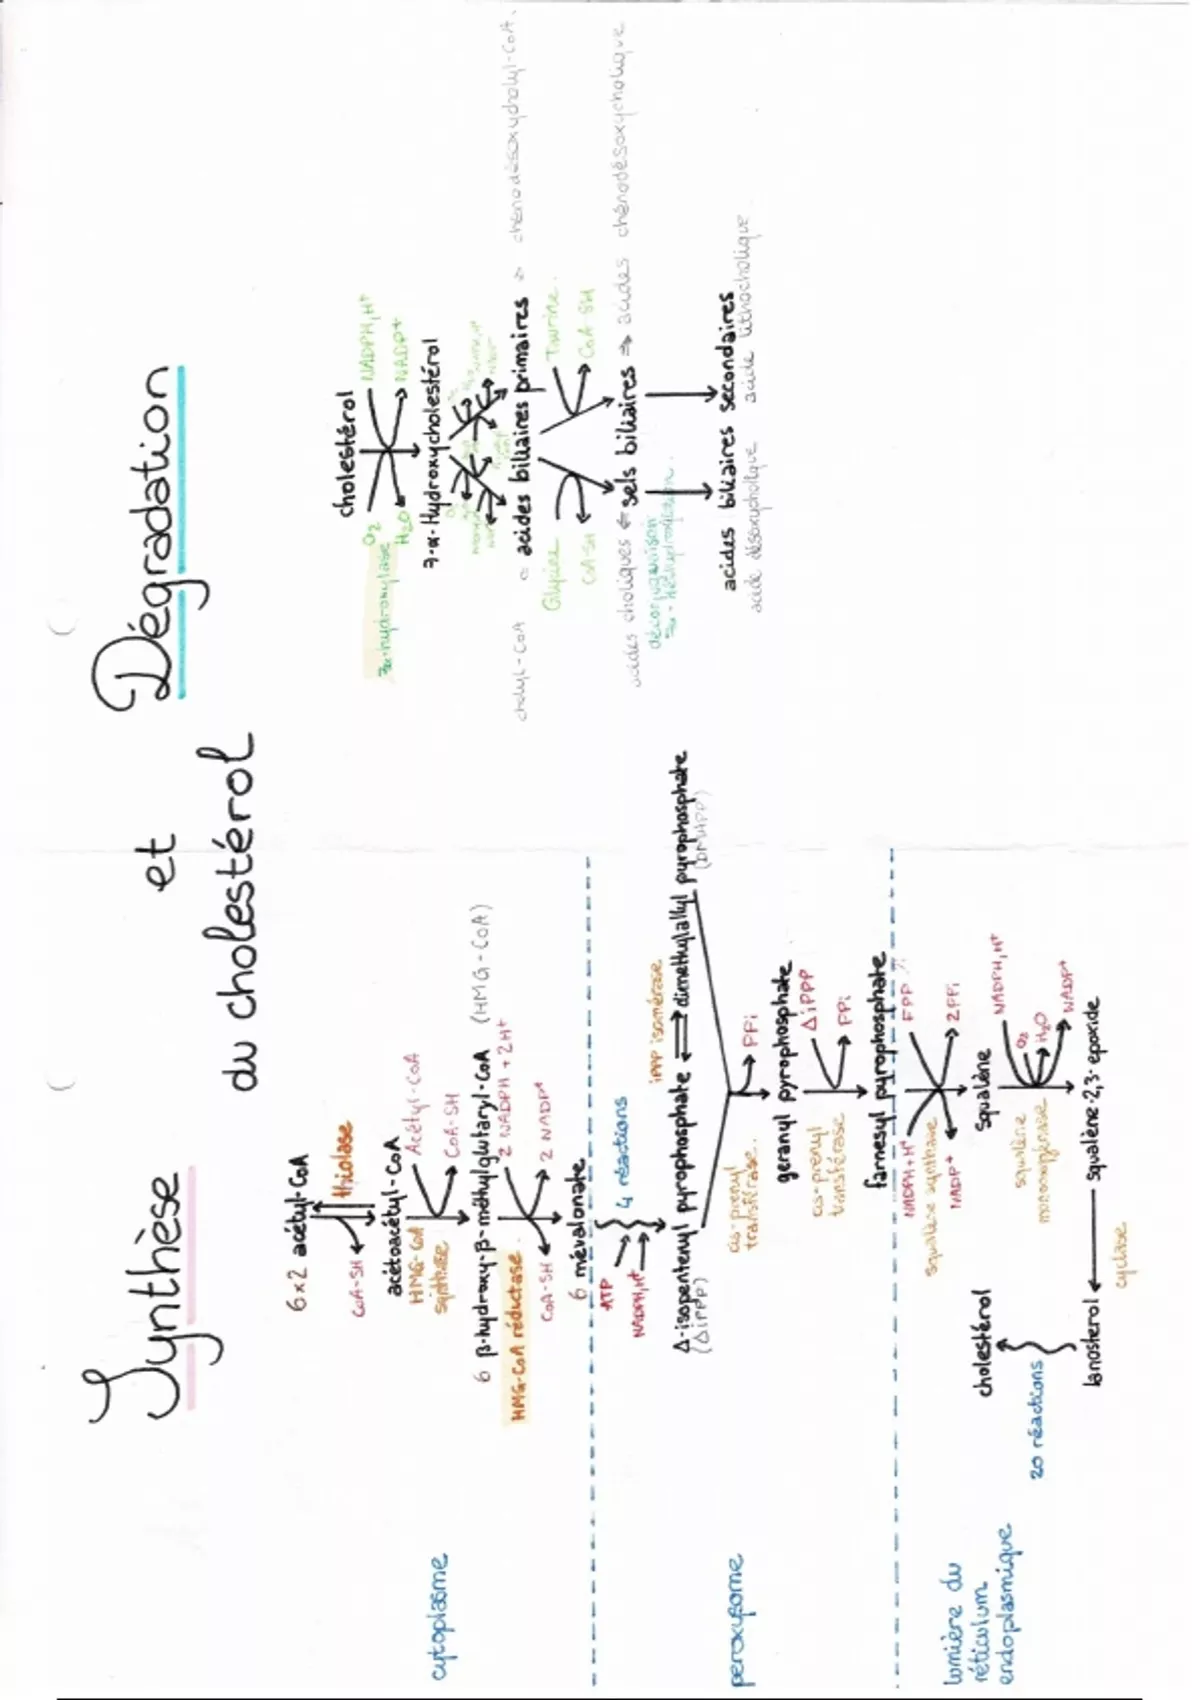 Synthèse et Dégradation
du cholestérol
cytoplasme
6 x 2 acétyl-CoA
thiolase
CoA-SH
acétoacétyl-CoA
HMG-CoA
synthase
Acétyl-CoA
CoA-SH
6 β-hydroxy-β-méthylglutaryl-CoA (HMG-CoA)
HMG-CoA réductase
2 NADPH + 2H+
CoA-SH
2 NADP+
6 mévalonate
peroxysome
ATP
NADPH,H+
4 réactions
Δ-isopentenyl pyrophosphate ⇌ dimethylallyl pyrophosphate
(ΔiPPP)
(DMAPP)
iPPP isomérase
cis-prenyl
transférase.
PPi
geranyl pyrophosphate
cis-prenyl
transférase
ΔiPPP
PPi
farnesyl pyrophosphate
lumière du
réticulum
endoplasmique
NADPH+H+
FPP
squalène synthase
NADP+
2PPi
squalène
NADPH,H+
squalène
monooxygénase
O2
H2O
NADP+
squalène-2,3-epoxide
cyclase
lanosterol
20 réactions
cholestérol
cholestérol
O2
NADPH,H+
7α-hydroxylase
H2O
NADP+
7-α-Hydroxycholestérol
cholyl-CoA
acides biliaires primaires
chénodésoxycholyl-CoA.
Glycine
Taurine.
CoA-SH
CoA-SH
acides choliques ⇐ sels biliaires ⇒ acides chénodésoxycholique
décorjuguaison
7α-déshydroxylation.
acides biliaires secondaires
acide désoxycholique
acide lithocholique.